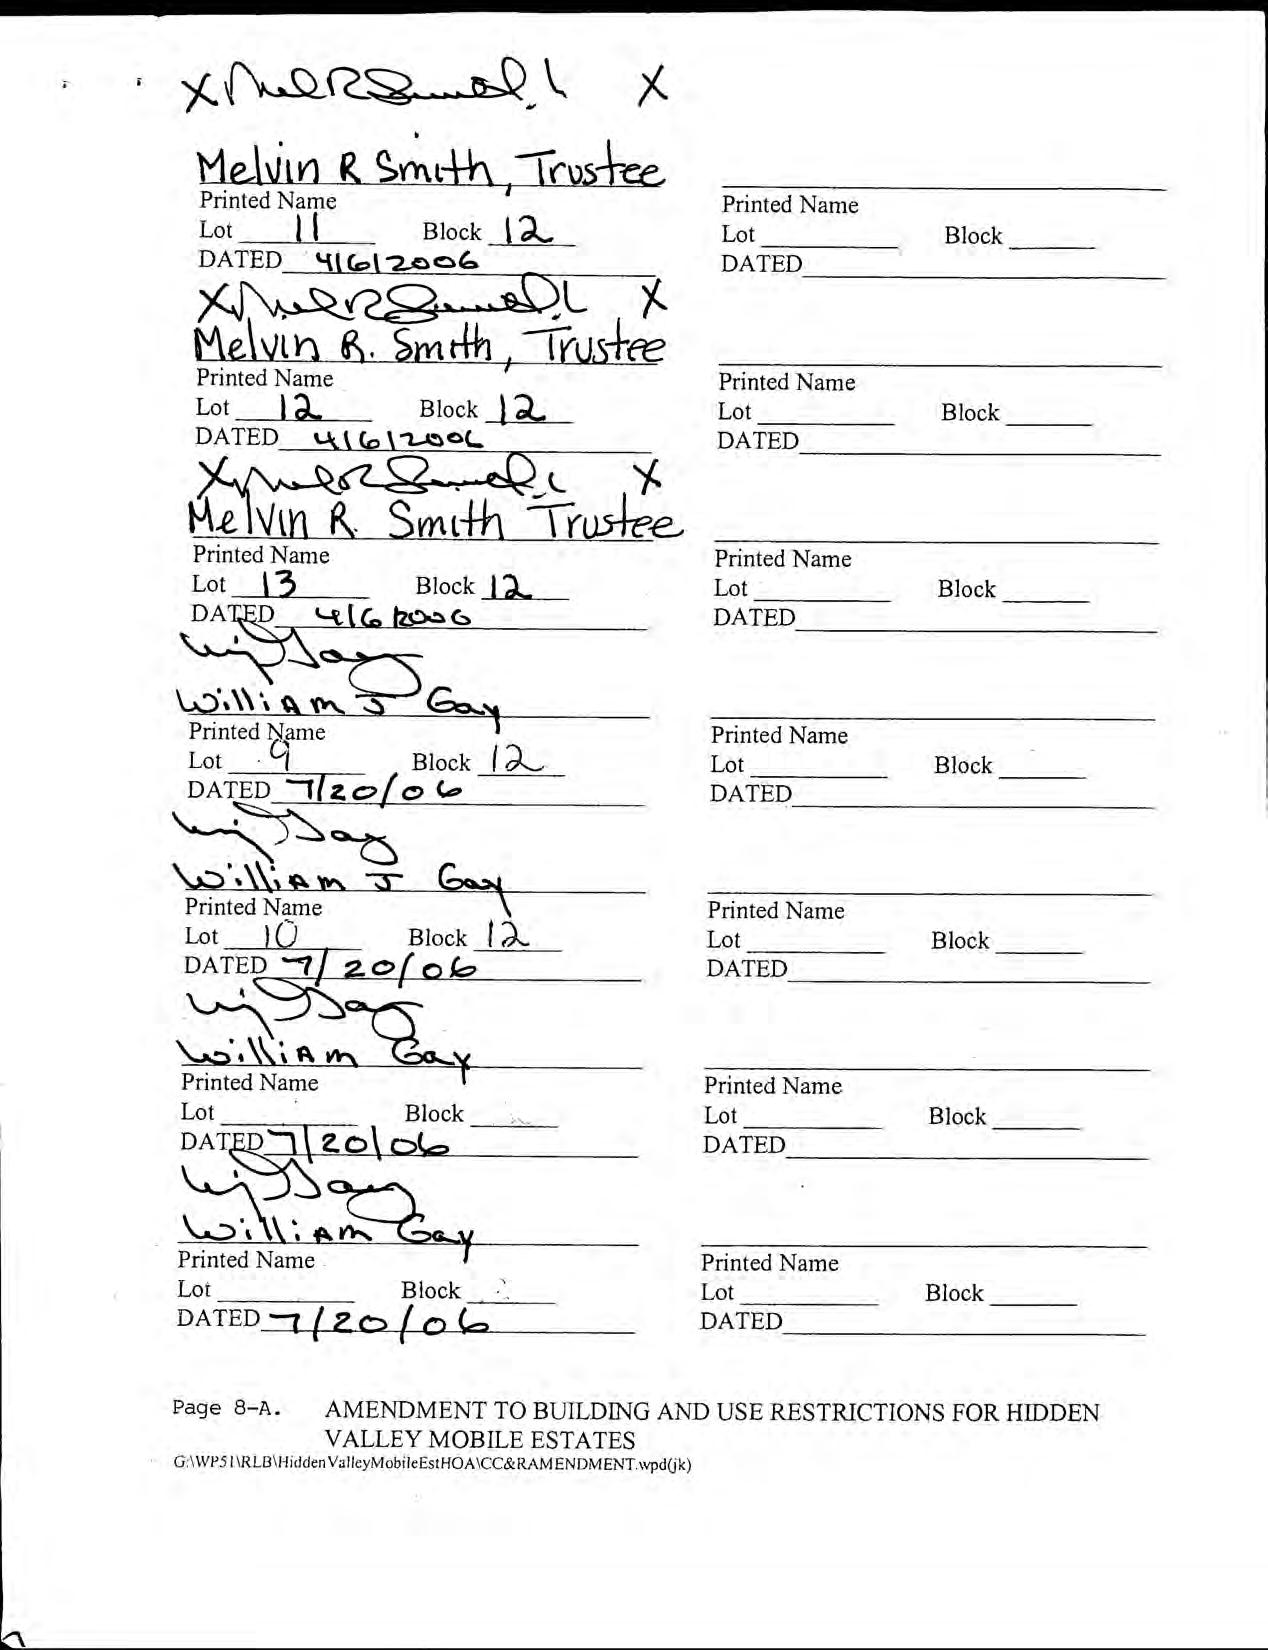 X X
Melvin R Smith, Trustee
Printed Name Printed Name
Lot 11 Block 12 Lot Block
DATED 4/6/2006 DATED
X X
Melvin R. Smith, Trustee
Printed Name Printed Name
Lot 12 Block 12 Lot Block
DATED 4/6/2006 DATED
X X
Melvin R. Smith Trustee
Printed Name Printed Name
Lot 13 Block 12 Lot Block
DATED 4/6/2006 DATED
William J Gay
Printed Name Printed Name
Lot 9 Block 12 Lot Block
DATED 7/20/06 DATED
William J Gay
Printed Name Printed Name
Lot 10 Block 12 Lot Block
DATED 7/20/06 DATED
William Gay
Printed Name Printed Name
Lot Block Lot Block
DATED 7/20/06 DATED
William Gay
Printed Name Printed Name
Lot Block Lot Block
DATED 7/20/06 DATED
Page 8-A. AMENDMENT TO BUILDING AND USE RESTRICTIONS FOR HIDDEN
VALLEY MOBILE ESTATES
G:\WP51\RLB\HiddenValleyMobileEstHOA\CC&RAMENDMENT.wpd(jk)